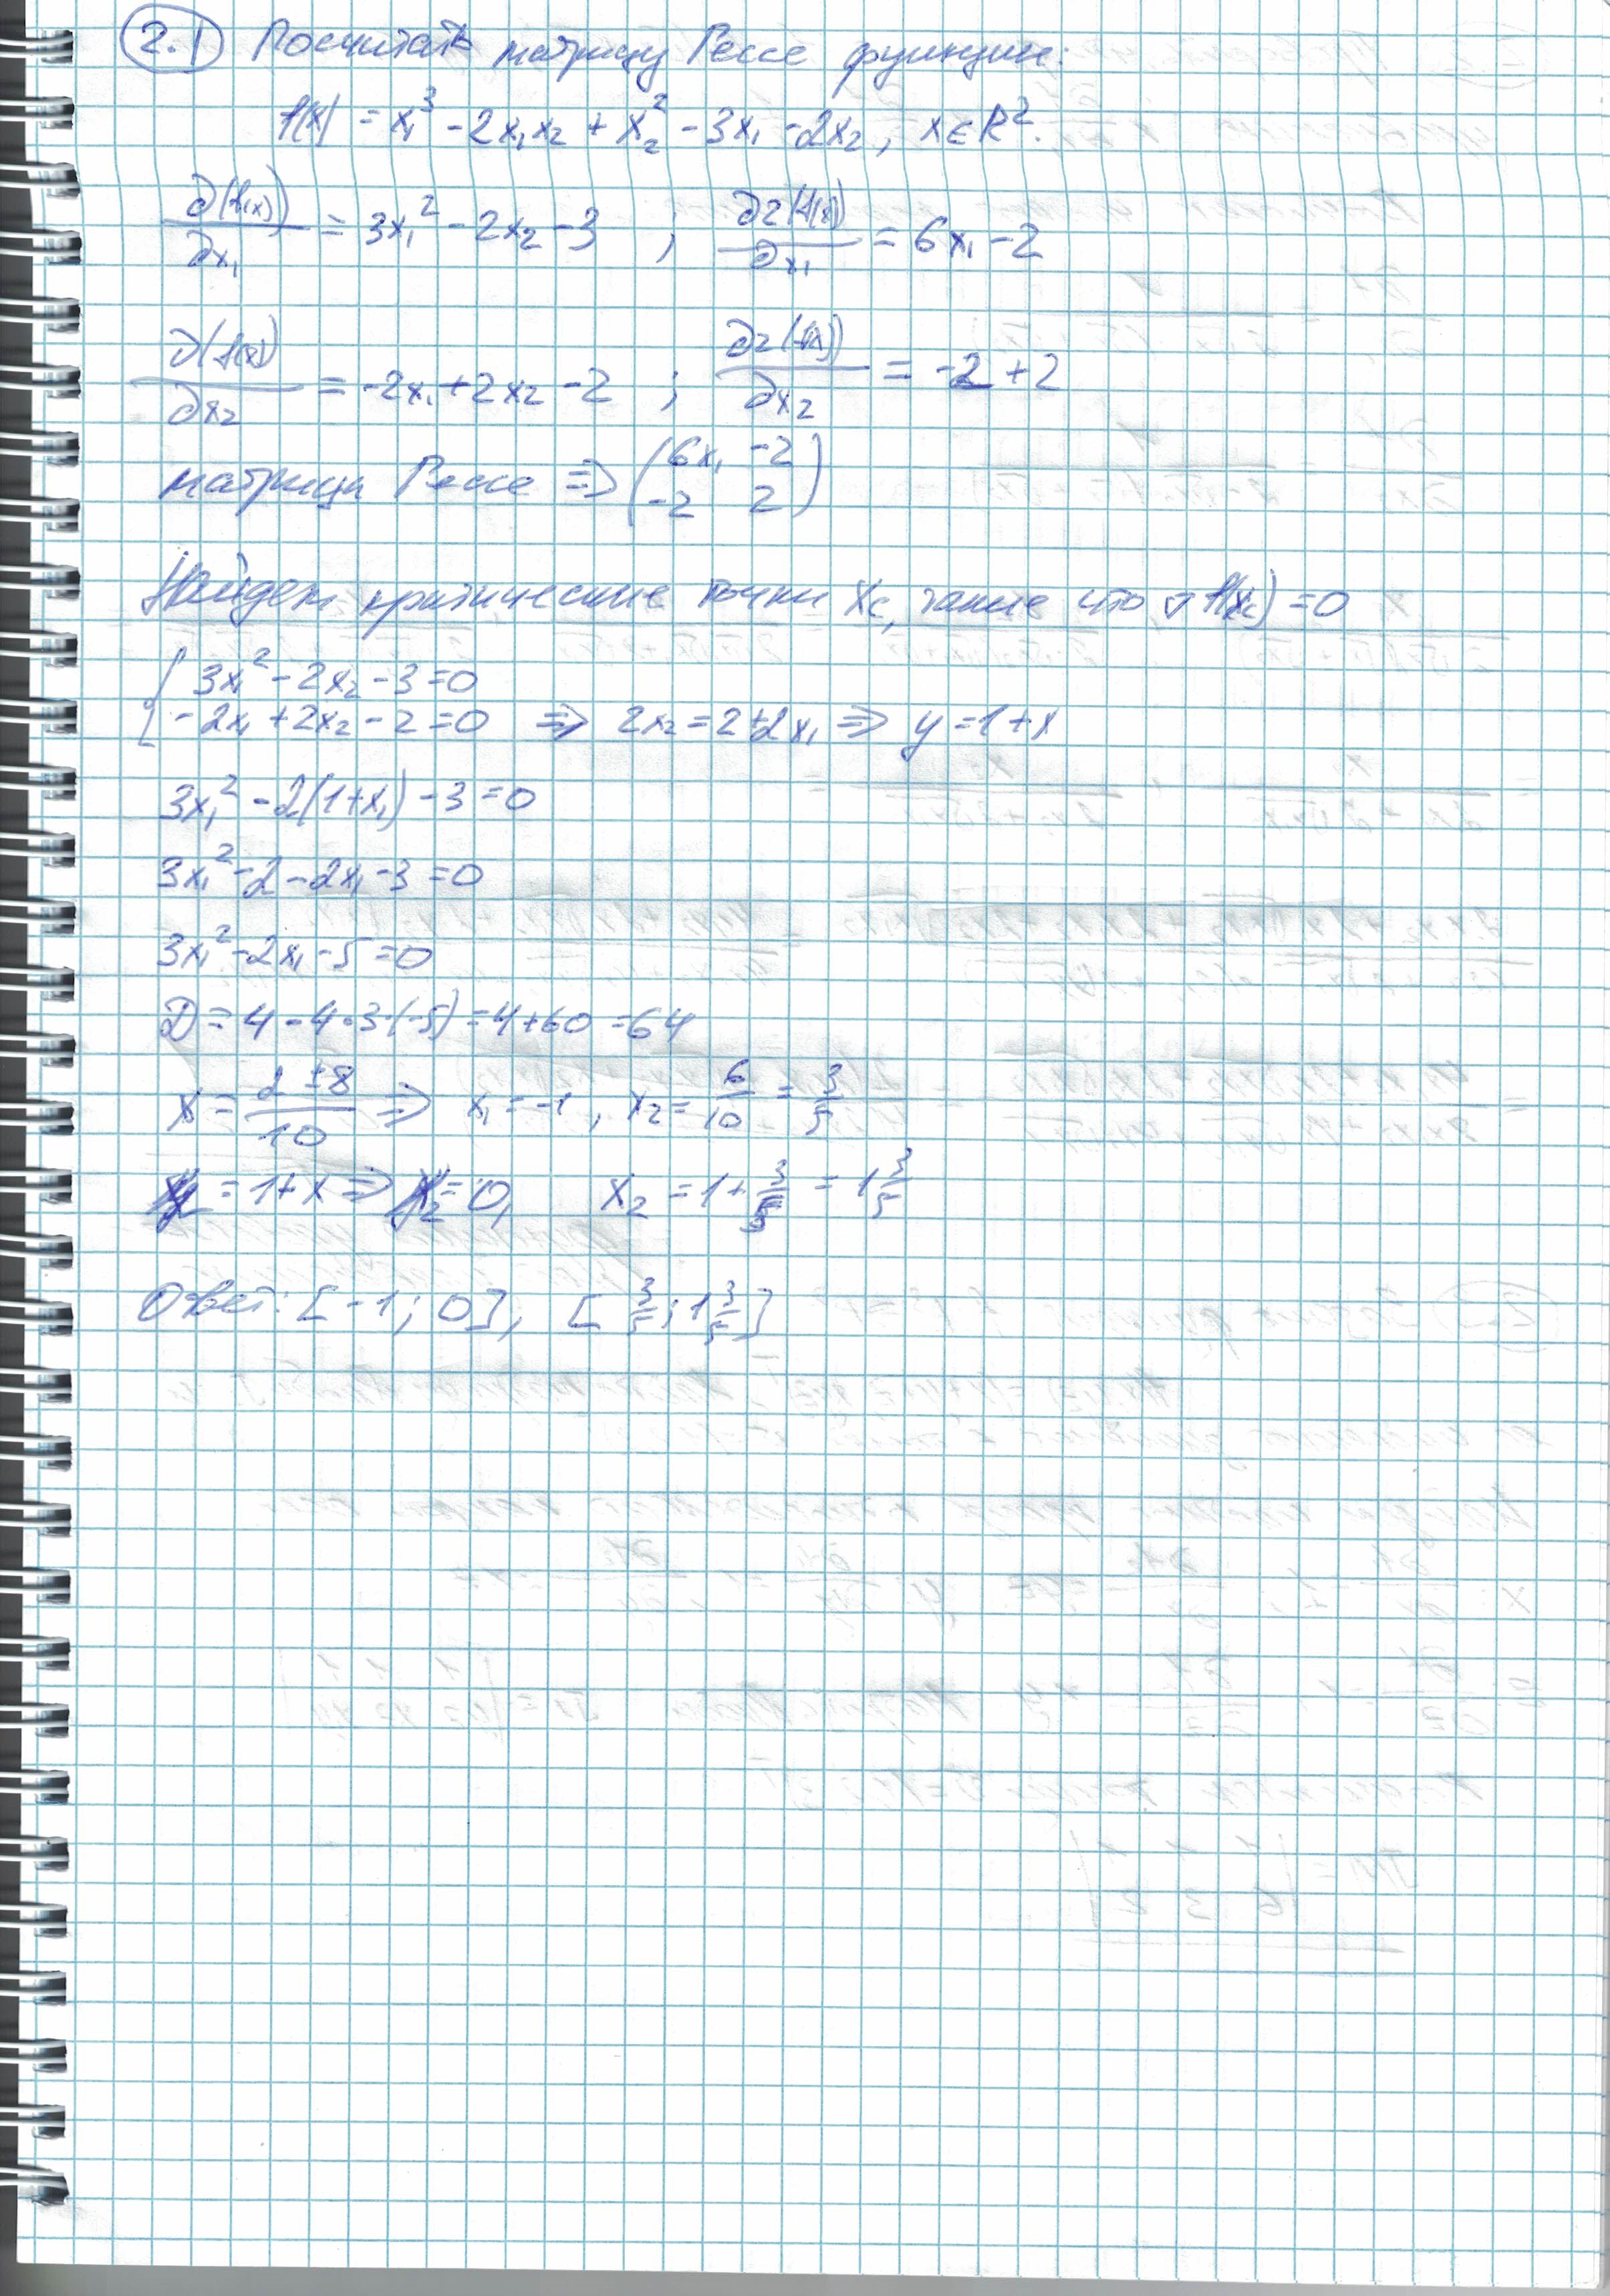 2.1 Посчитать матрицу Гессе функции:
f(x) = x₁³ - 2x₁x₂ + x₂² - 3x₁ - 2x₂, x ∈ R².
∂(f(x))/∂x₁ = 3x₁² - 2x₂ - 3 ; ∂2(f(x))/∂x₁ = 6x₁ - 2
∂(f(x))/∂x₂ = -2x₁ + 2x₂ - 2 ; ∂2(f(x))/∂x₂ = -2 + 2
матрица Гессе => (6x₁ -2
-2 2)
Найдем критические точки Xc, такие что ∇f(xc) = 0
{ 3x₁² - 2x₂ - 3 = 0
-2x₁ + 2x₂ - 2 = 0 => 2x₂ = 2 + 2x₁ => y = 1 + x
3x₁² - 2(1+x₁) - 3 = 0
3x₁² - 2 - 2x₁ - 3 = 0
3x₁² - 2x₁ - 5 = 0
D = 4 - 4·3·(-5) = 4 + 60 = 64
x = (2 ± 8)/10 => x₁ = -1, x₂ = 6/10 = 3/5
= 1 + x => x₂ = 0, x₂ = 1 + 3/5 = 1 3/5
Ответ: [-1; 0], [3/5; 1 3/5]